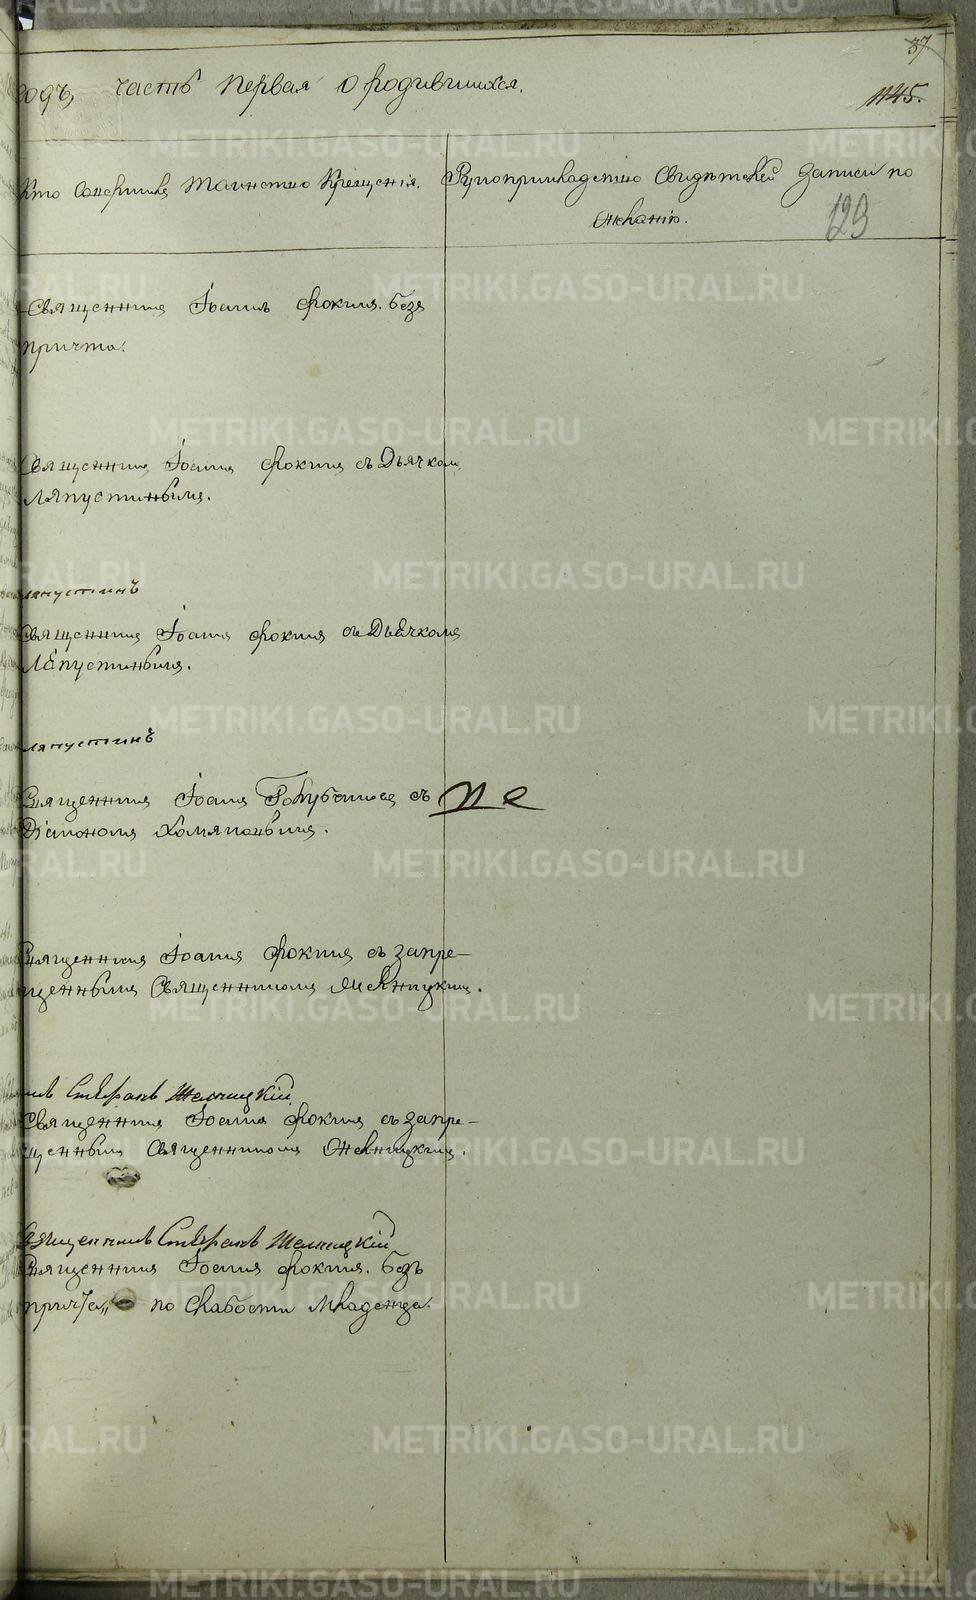 37
годъ, часть первая о родившихся.
1145.
Кто совершилъ таинство крещенія.
Рукоприкладство свидѣтелей записи по
желанію.
129
Священникъ Іоаннъ Фокинъ. безъ
причта.
Священникъ Іоаннъ Фокинъ съ Дьячкомъ
Ляпустинымъ.
Ляпустинъ
Священникъ Іоаннъ Фокинъ съ Дьячкомъ
Ляпустинымъ.
Ляпустинъ
Священникъ Іоаннъ съ
Діакономъ Хомяковымъ.
Священникъ Іоаннъ Фокинъ съ запре-
щеннымъ Священникомъ
Стефанъ
Священникъ Іоаннъ Фокинъ съ запре-
щеннымъ Священникомъ
Священникъ Стефанъ
Священникъ Іоаннъ Фокинъ. безъ
причта, по слабости младенца.
METRIKI.GASO-URAL.RU